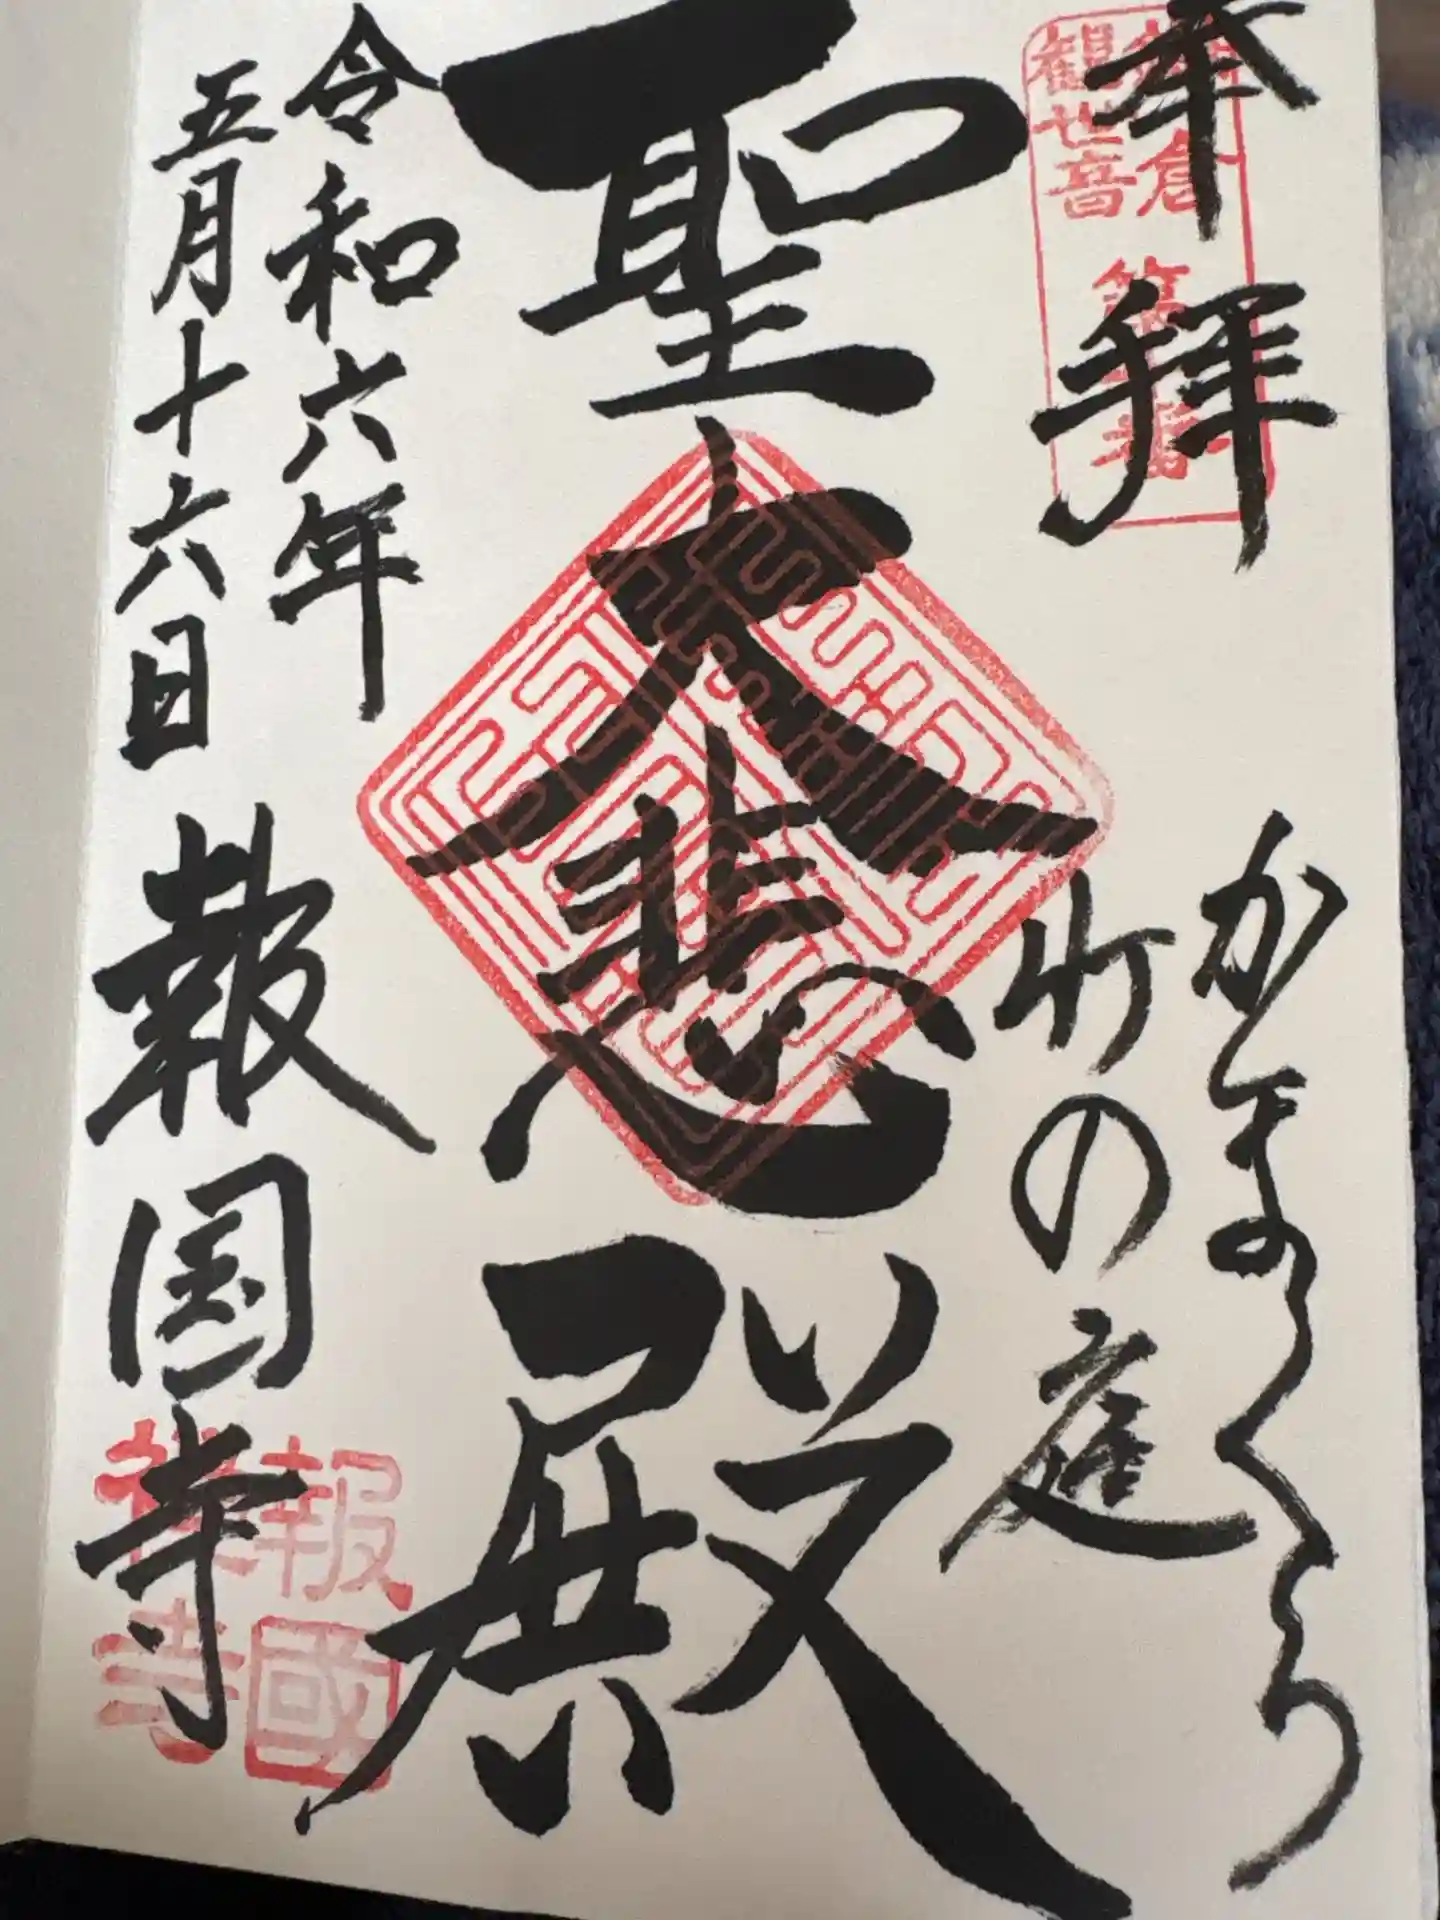 奉拝
鎌倉
観世音
第十番
かまくら
竹の庭
聖大悲殿
令和六年
五月十六日
報国寺
報國
禅寺